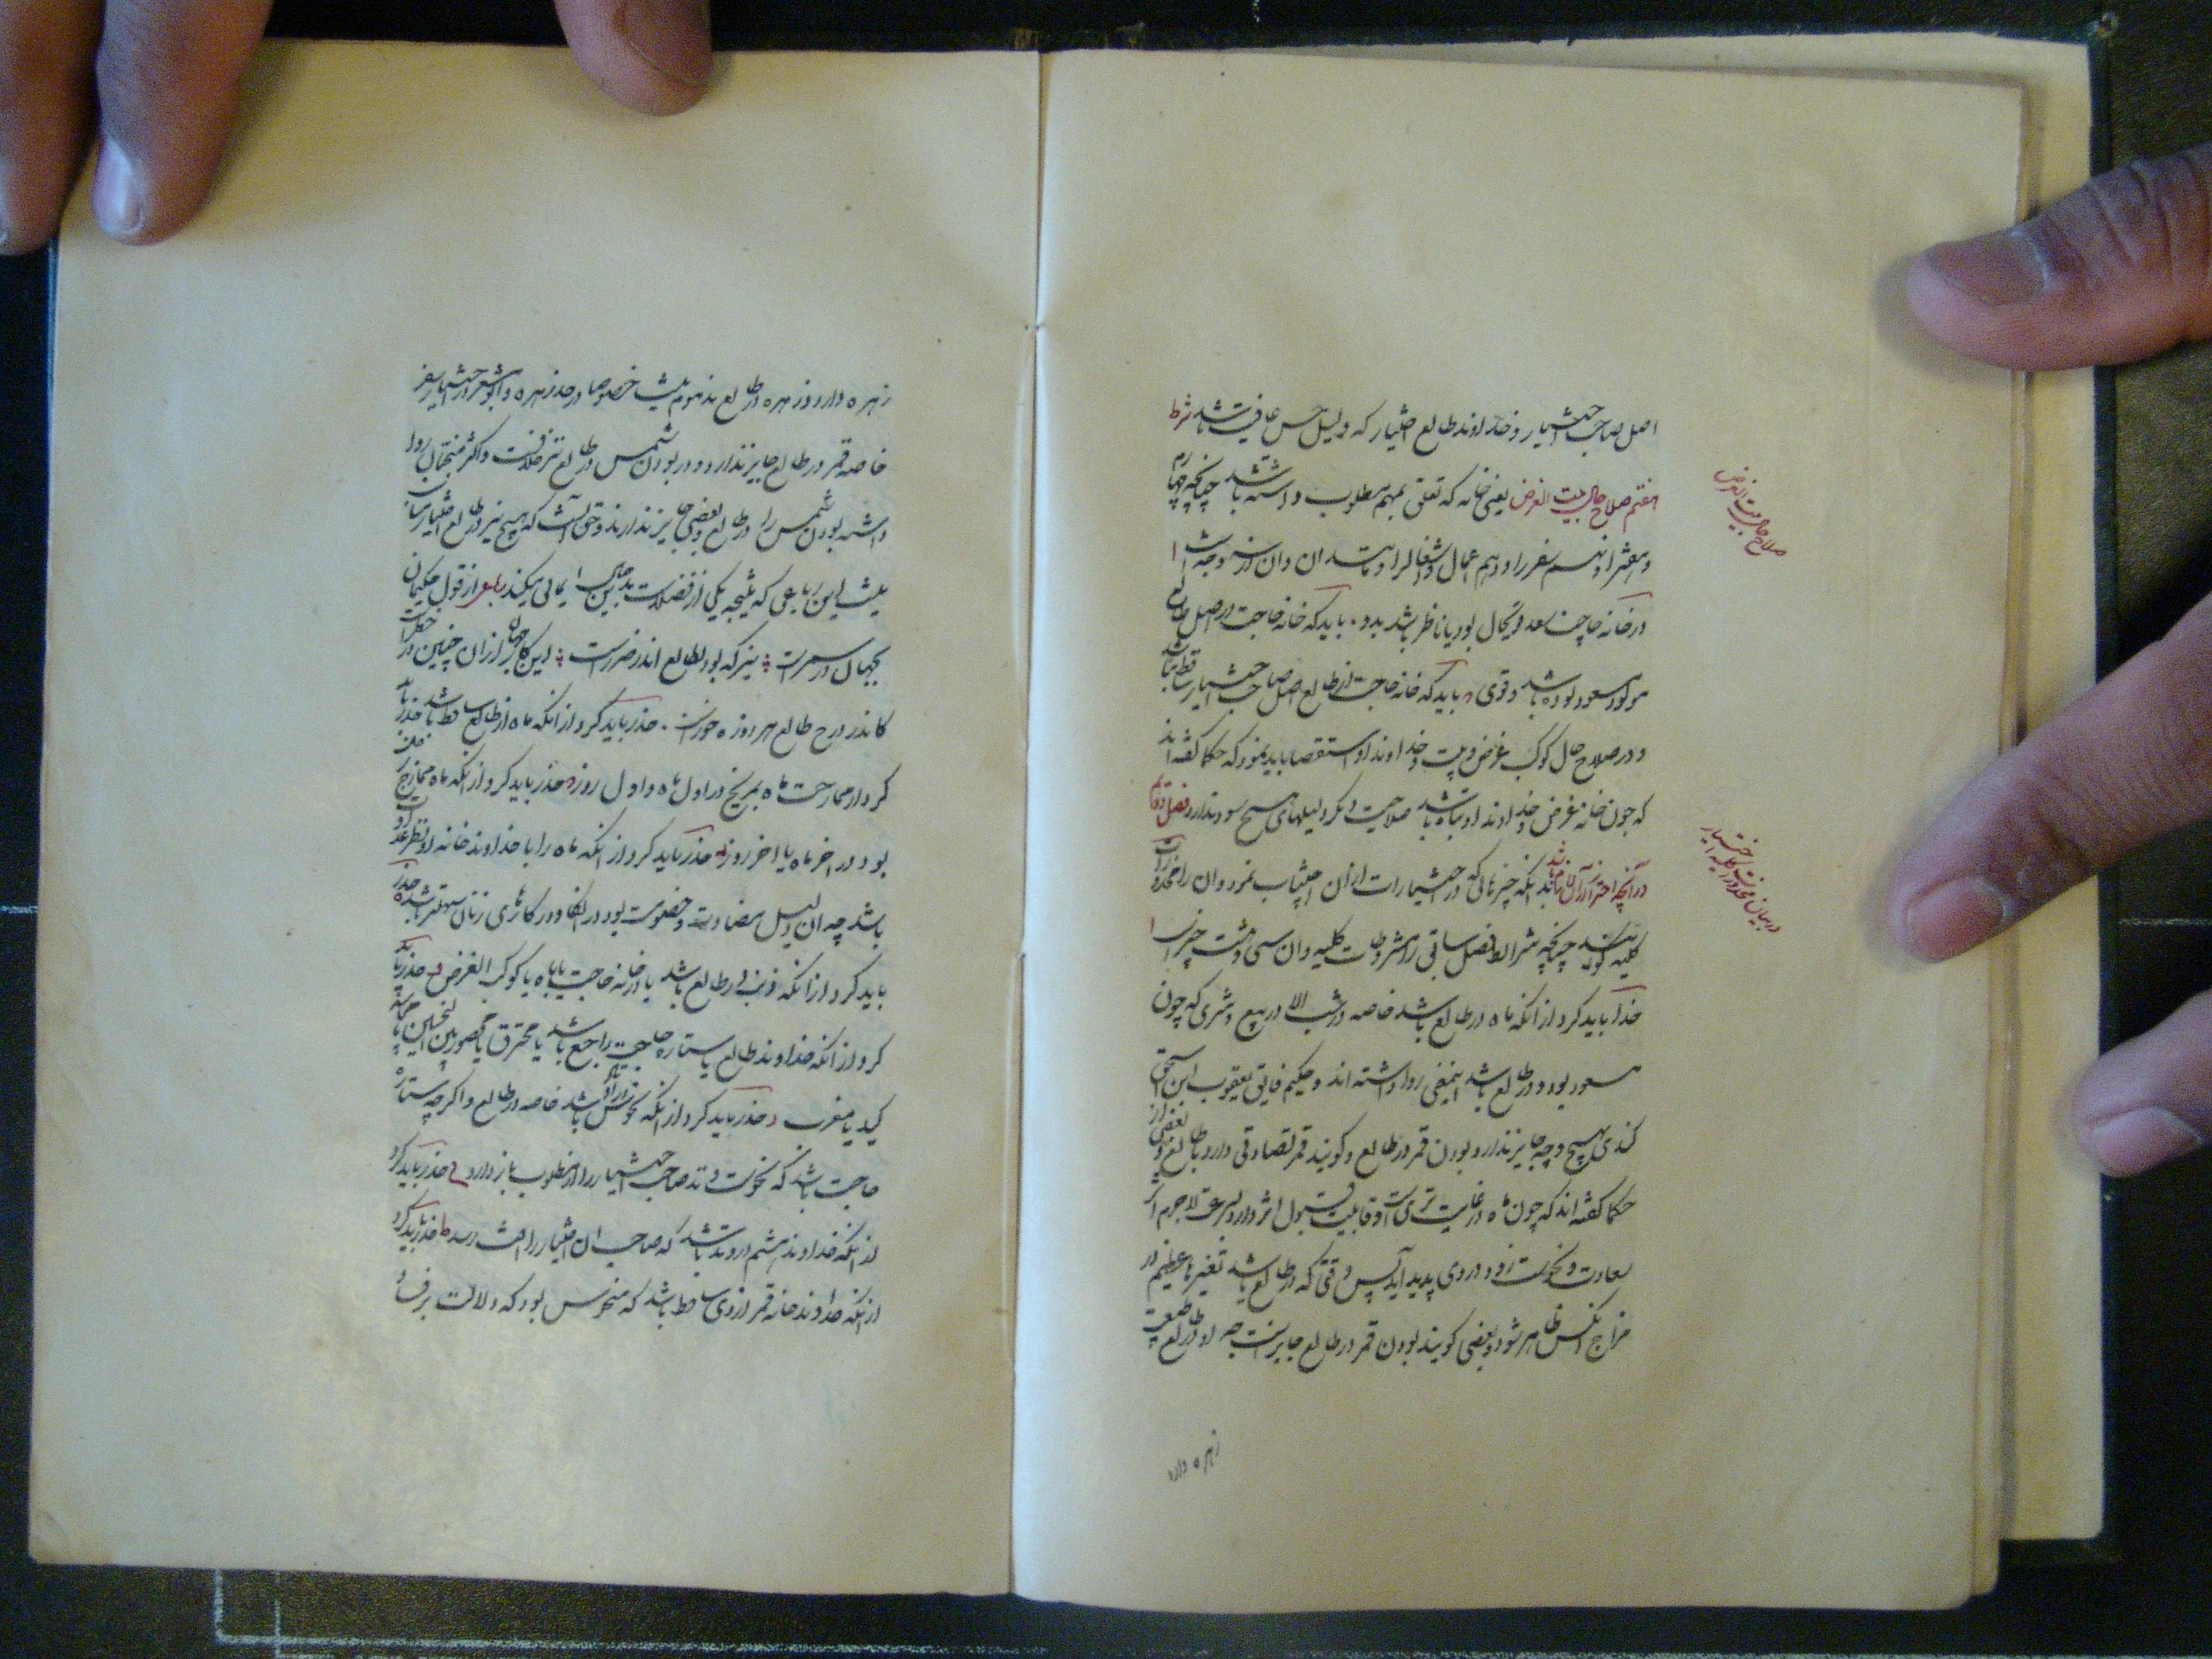 اصل صاحب اختیار و خداوند طالع اختیار که دلیل حسن عاقبت باشد شرط
هفتم صلاح حال بیت الغرض یعنی خانه که تعلق بمهم مطلوب داشته باشد چنانچه چهارم
صلاح حال بیت الغرض
و نهم سفر را و دهم اعمال و اشغال را و
در خانه حاجت سعد قویحال بود یا ناظر باشد بدو باید که خانه حاجت در اصل طالع
مولود مسعود بوده باشد و قوی باید که خانه حاجت از طالع اصل صاحب اختیار ساقط نباشد
و در صلاح حال کوکب غرض و بیت و خداوند او استقصا باید نمود که حکما گفته اند
که چون خانه غرض و خداوند او تباه باشد صلاحیت دیگر دلیلهای هیچ سود ندارد فصل دوم
در بیان محذورات کلیه اختیار
در آنچه احتراز از آن باید بدانکه چیزهائی که در اختیارات از آن اجتناب نمودن آن را محذورات
کلیه گویند چنانچه شرائط فصل سابق را مشروطات کلیه و آن سی و هشت چیز است ا
حذر باید کرد از انکه ماه در طالع باشد خاصه در شب الا در بیع و شری که چون
مسعود بود و در طالع باشد اینمعنی روا داشته اند و حکیم فایق یعقوب ابن اسحق
کندی بهیچ وجه جایز ندارد بودن قمر در طالع و گویند قمر تضادی دارد با طالع و بعضی از
حکما گفته اند که چون ماه در غایت تری است و قابلیت قبول اثر دارد بسرعت لاجرم اثر
سعادت و نحوست زود در وی پدید آید پس وقتی که در طالع باشد تغییرها عظیم در
مزاج انکس ظاهر شود و بعضی گویند بودن قمر در طالع جایز است چه او در طالع طبیعت
زهره دارد
زهره دارد و زهره در طالع مذموم نیست خصوصا در حد زهره و ابومعشر در اختیار سفر
خاصه قمر در طالع جایز ندارد و در بودن شمس در طالع نیز خلافست و اکثر منجمان روا
داشته بودن شمس را در طالع و بعضی جایز ندارند و حق آنست که هیچ نیر در طالع اختیار
نیست این رباعی که نتیجه یکی از فضلاست بدین معنی ایمائی میکند رباعی از قول حکیمان
بجهان در سمرست نیر که بود بطالع اندر ضررست این کار جهان از ان چنین در خطر است
کاندر درج طالع هر روزه خورست حذر باید کرد از انکه ماه از طالع ساقط باشد حذر باید
کرد از ممازجت ماه بمریخ در اول ماه و اول روز حذر باید کرد از انکه ماه ممازج زحل
بود در آخر ماه یا آخر روز حذر باید کرد از انکه ماه را با خداوند خانه او نظر عداوت
باشد چه آن دلیل مضادت و خصومت بود در نکاح و در کارهای زنان سهلتر باشد حذر
باید کرد از انکه ذنب در طالع باشد یا در خانه حاجت یا با ماه یا کوکب الغرض حذر باید
کرد از انکه خداوند طالع یا ستاره حاجت راجع باشد یا محترق یا محصور بین النحسین یا
کید یا مغرب حذر باید کرد از انکه نحوس در اوتاد باشد خاصه در طالع و اگرچه ستاره
حاجت باشد که نحوست وتد صاحب اختیار را از مطلوب باز دارد حذر باید کرد
از انکه خداوند هشتم در وتد باشد که صاحب آن اختیار را آفت رسد حذر باید کرد
از انکه خداوند خانه قمر از وی ساقط باشد که منحوس بود که دلالت بر فساد